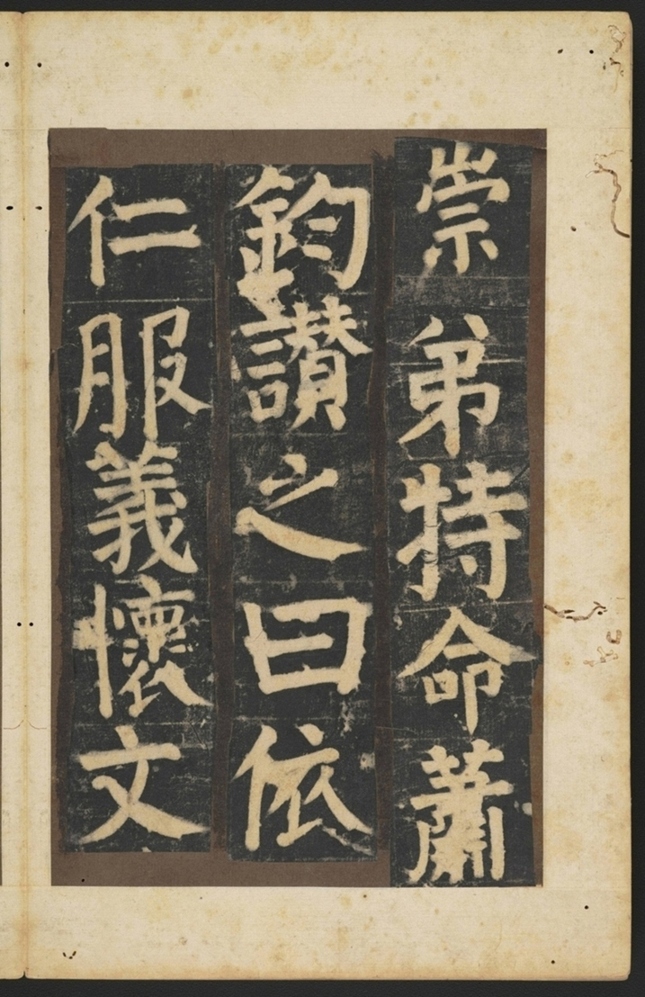 崇弟特命蕭
鈞讃之曰依
仁服義懷文